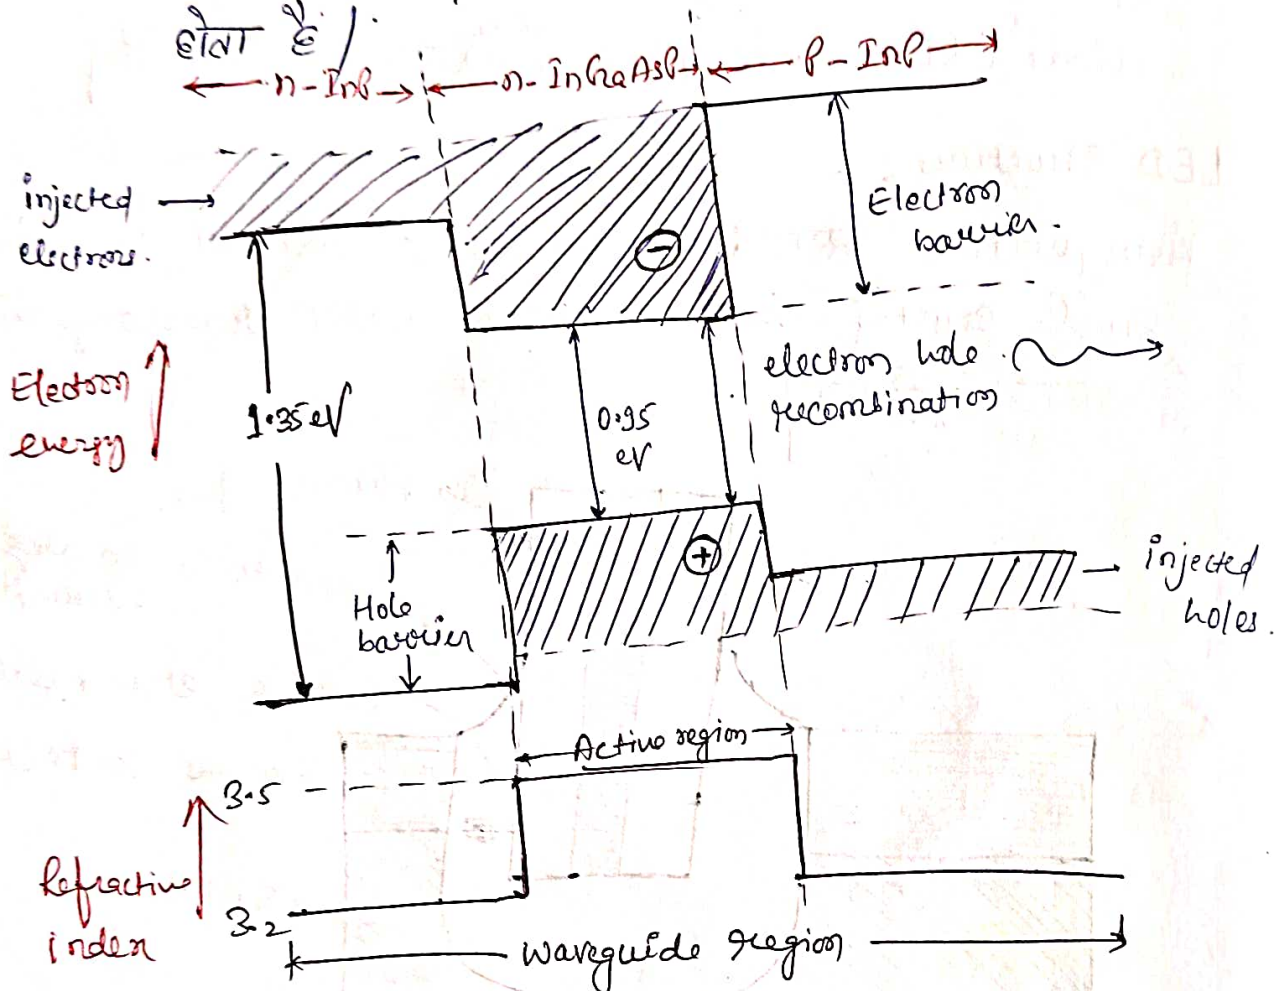 होता है।
n-InP
n-InGaAsP
p-InP
injected
electrons.
Electron
barrier.
Electron
energy
1.35 eV
0.95
eV
electron hole
recombination
Hole
barrier
injected
holes.
Active region
3.5
Refractive
index
3.2
waveguide region